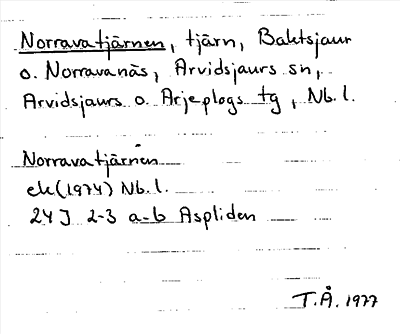 Norravatjärnen, tjärn, Baktsjaur
o. Norravanäs, Arvidsjaurs sn,
Arvidsjaurs o. Arjeplogs tg, Nb. l.
Norravatjärnen
ek(1974) Nb. l.
24J 2-3 a-b Aspliden
T.Å. 1977